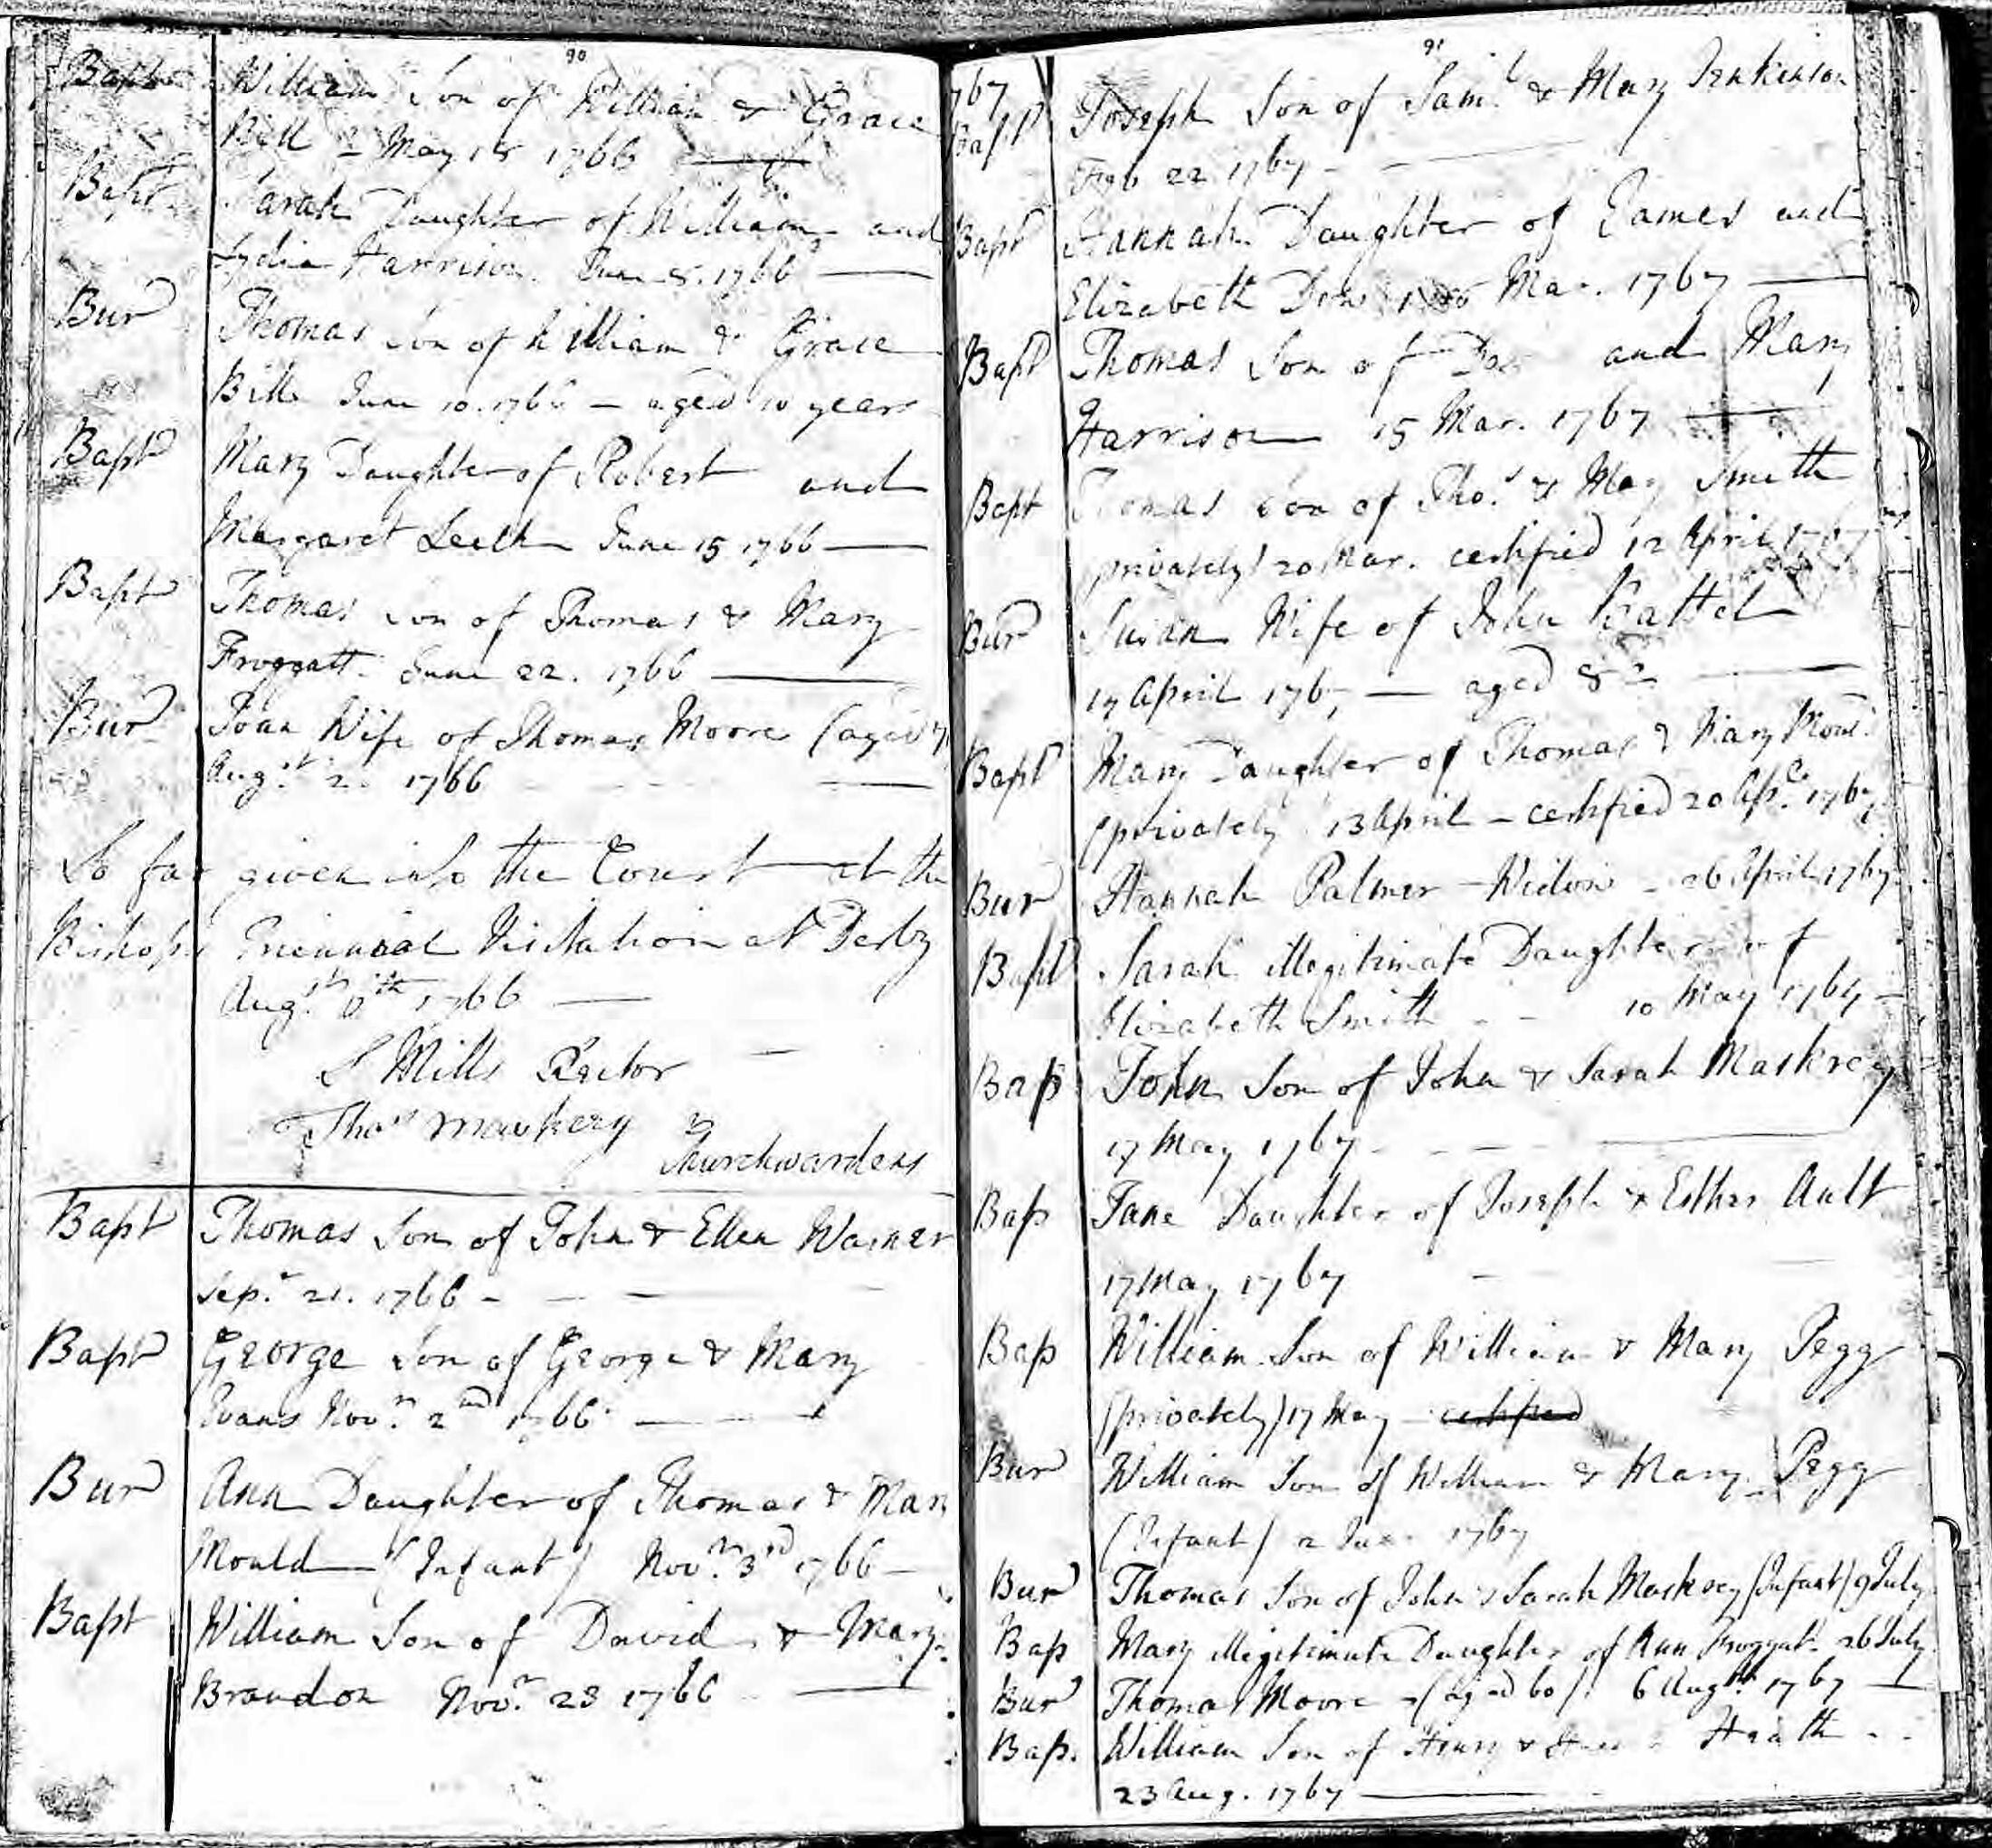 90
Bapt William Son of William & Grace
Bill May 18 1766
Bapt Sarah Daughter of William and
Lydia Harrison. June 8. 1766
Bur Thomas Son of William & Grace
Bill June 10. 1766 — aged 10 years
Bapt Mary Daughter of Robert and
Margaret Leeth June 15 1766 —
Bapt Thomas Son of Thomas & Mary
Froggatt. June 22. 1766 —
Bur Joan Wife of Thomas Moore (aged
Augst 2. 1766
So far given into the Court at the
Bishops Triennial Visitation at Derby
Augst 1766 —
S Mills Rector
Thos Maskery
Churchwardens
Bapt Thomas Son of John & Ellen Warner
Sepr 21. 1766 -
Bapt George Son of George & Mary
Evans Novr 2nd 1766 —
Bur Ann Daughter of Thomas & Mary
Mould (Infant) Novr 3rd 1766 —
Bapt William Son of David & Mary
Brandon Novr 23 1766 —
91
767
Bapt Joseph Son of Saml & Mary Jenkinson
Feb 22 1767 -
Bapt Hannah Daughter of James and
Elizabeth Mar. 1767 —
Bapt Thomas Son of and Mary
Harrison 15 Mar. 1767 —
Bapt Thomas Son of Thos & Mary Smith
privately 20 Mar. certified 12 April 1767
Bur Susan Wife of John Battel
17 April 1767 — aged 82 —
Bapt Mary Daughter of Thomas & Mary
(privately 13 April - certified 20 Apl. 1767
Bur Hannah Palmer - Widow - 26 April 1767
Bapt Sarah illegitimate Daughter of
Elizabeth Smith - - 10 May 1767 -
Bap John Son of John & Sarah Maskrey
17 May 1767 -
Bap Jane Daughter of Joseph & Esther Ault
17 May 1767
Bap William Son of William & Mary Pegg
(privately) 17 May certified
Bur William Son of William & Mary Pegg
(Infant) 2 June 1767
Bur Thomas Son of John & Sarah Maskrey (Infant) 9 July
Bap Mary illegitimate Daughter of Ann Froggat. 26 July
Bur Thomas Moore - (aged 60). 6 Augst 1767 —
Bap. William Son of Henry & Heath - -
23 Aug. 1767 —